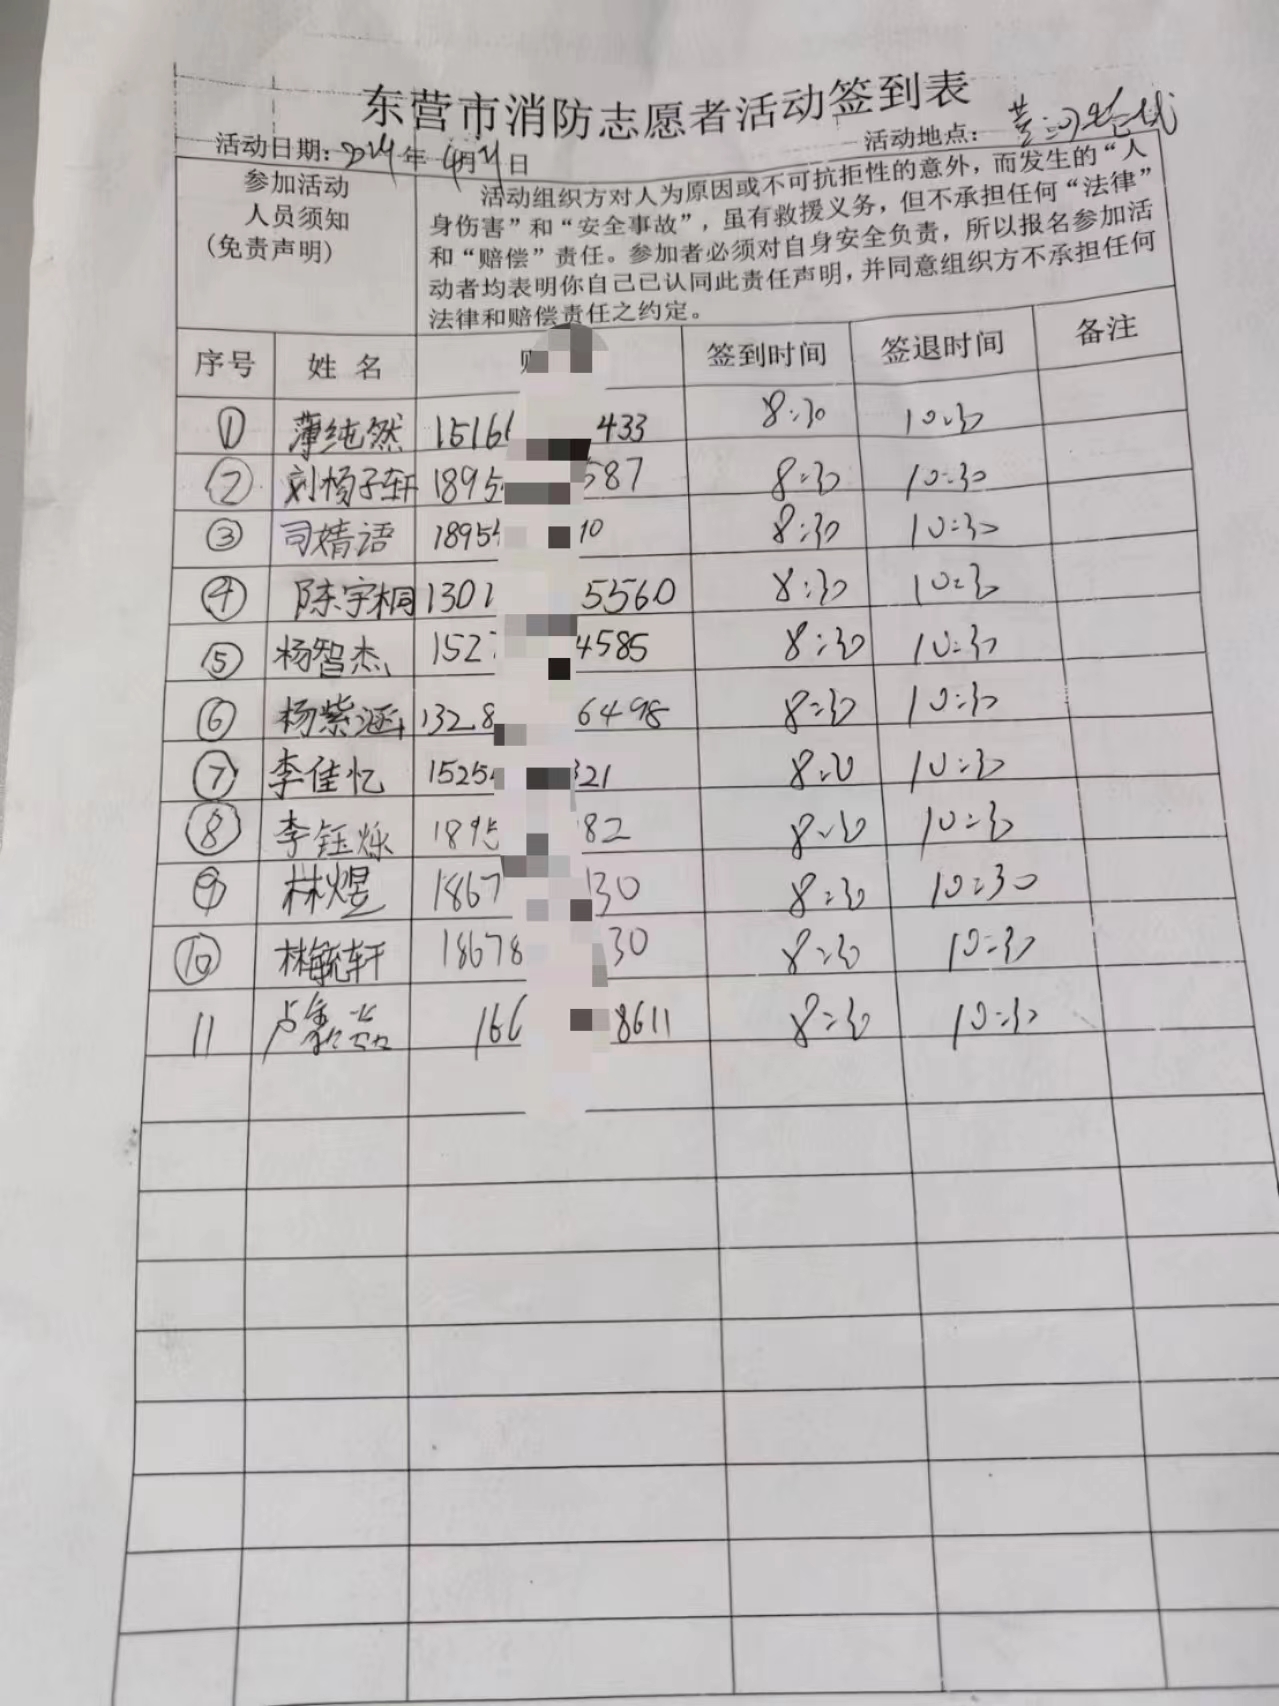 东营市消防志愿者活动签到表
活动日期：2024年4月21日 活动地点：
参加活动
人员须知
（免责声明）
活动组织方对人为原因或不可抗拒性的意外，而发生的“人
身伤害”和“安全事故”，虽有救援义务，但不承担任何“法律”
和“赔偿”责任。参加者必须对自身安全负责，所以报名参加活
动者均表明你自己已认同此责任声明，并同意组织方不承担任何
法律和赔偿责任之约定。
序号 姓名 签到时间 签退时间 备注
① 薄纯然 1516 433 8:30 10:30
② 刘杨子轩 1895 587 8:30 10:30
③ 司婧语 1895 10 8:30 10:30
④ 陈宇桐 1301 5560 8:30 10:30
⑤ 杨智杰 152 4585 8:30 10:30
⑥ 杨紫涵 1328 6498 8:30 10:30
⑦ 李佳忆 1525 321 8:30 10:30
⑧ 李钰烁 1895 82 8:30 10:30
⑨ 林煜 1867 130 8:30 10:30
⑩ 林毓轩 18678 30 8:30 10:30
11 166 8611 8:30 10:30